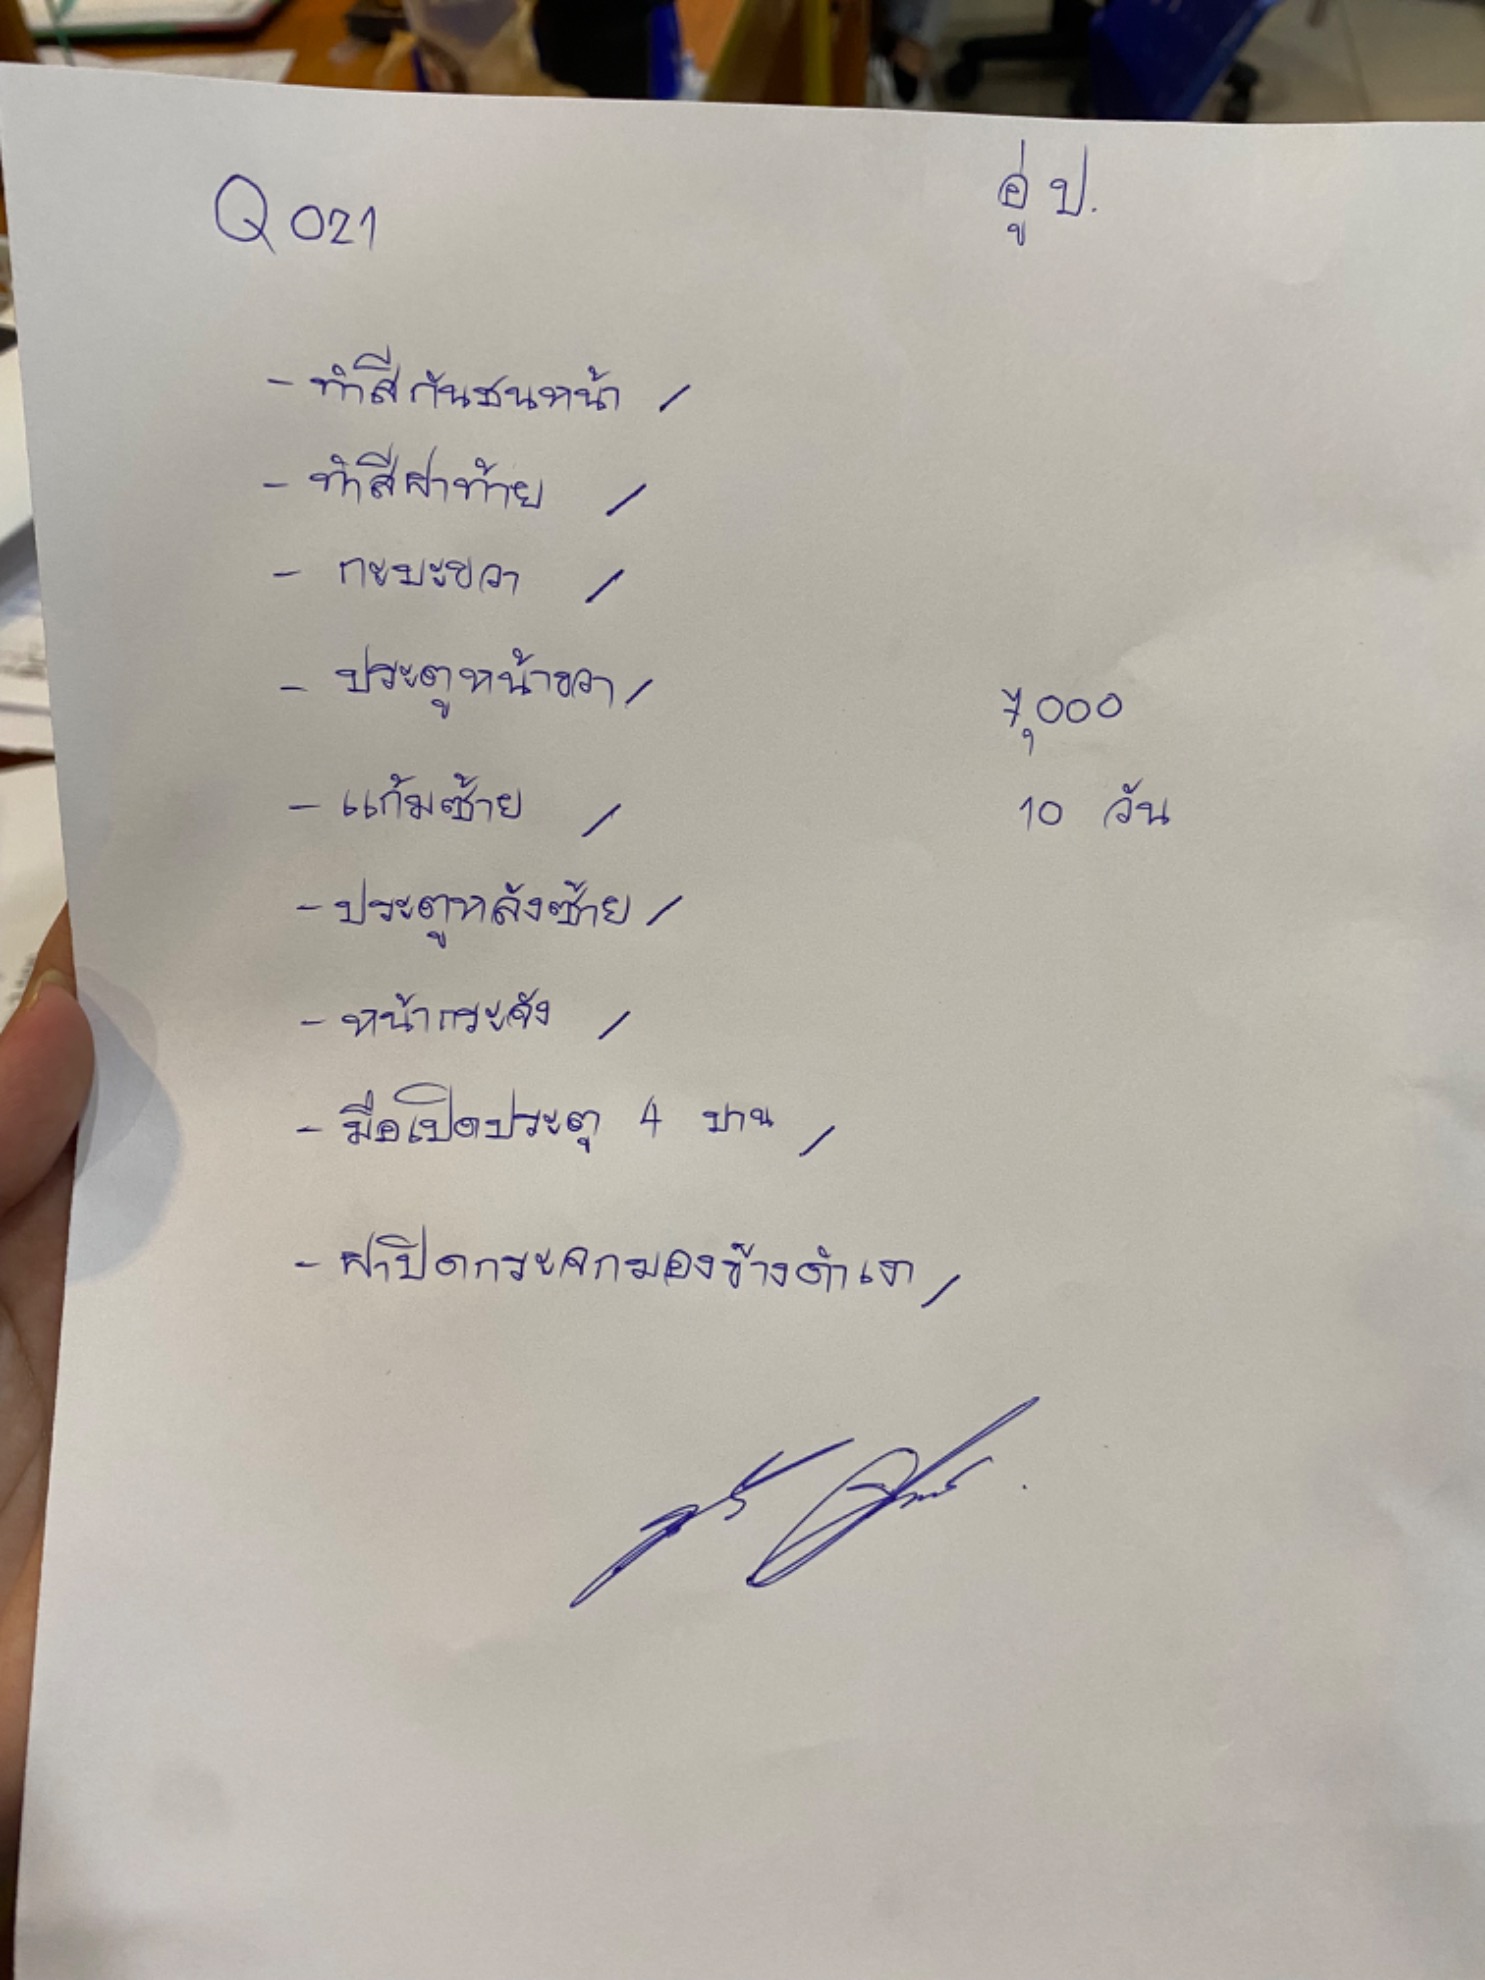 Q 021
อู่ ป.
- ทำสีกันชนหน้า /
- ทำสีฝาท้าย /
- กะบะขวา /
- ประตูหน้าขวา /
7,000
- แก้มซ้าย /
10 วัน
- ประตูหลังซ้าย /
- หน้ากระจัง /
- มือเปิดประตุ 4 บาน /
- ฝาปิดกระจกมองข้างดำเงา /